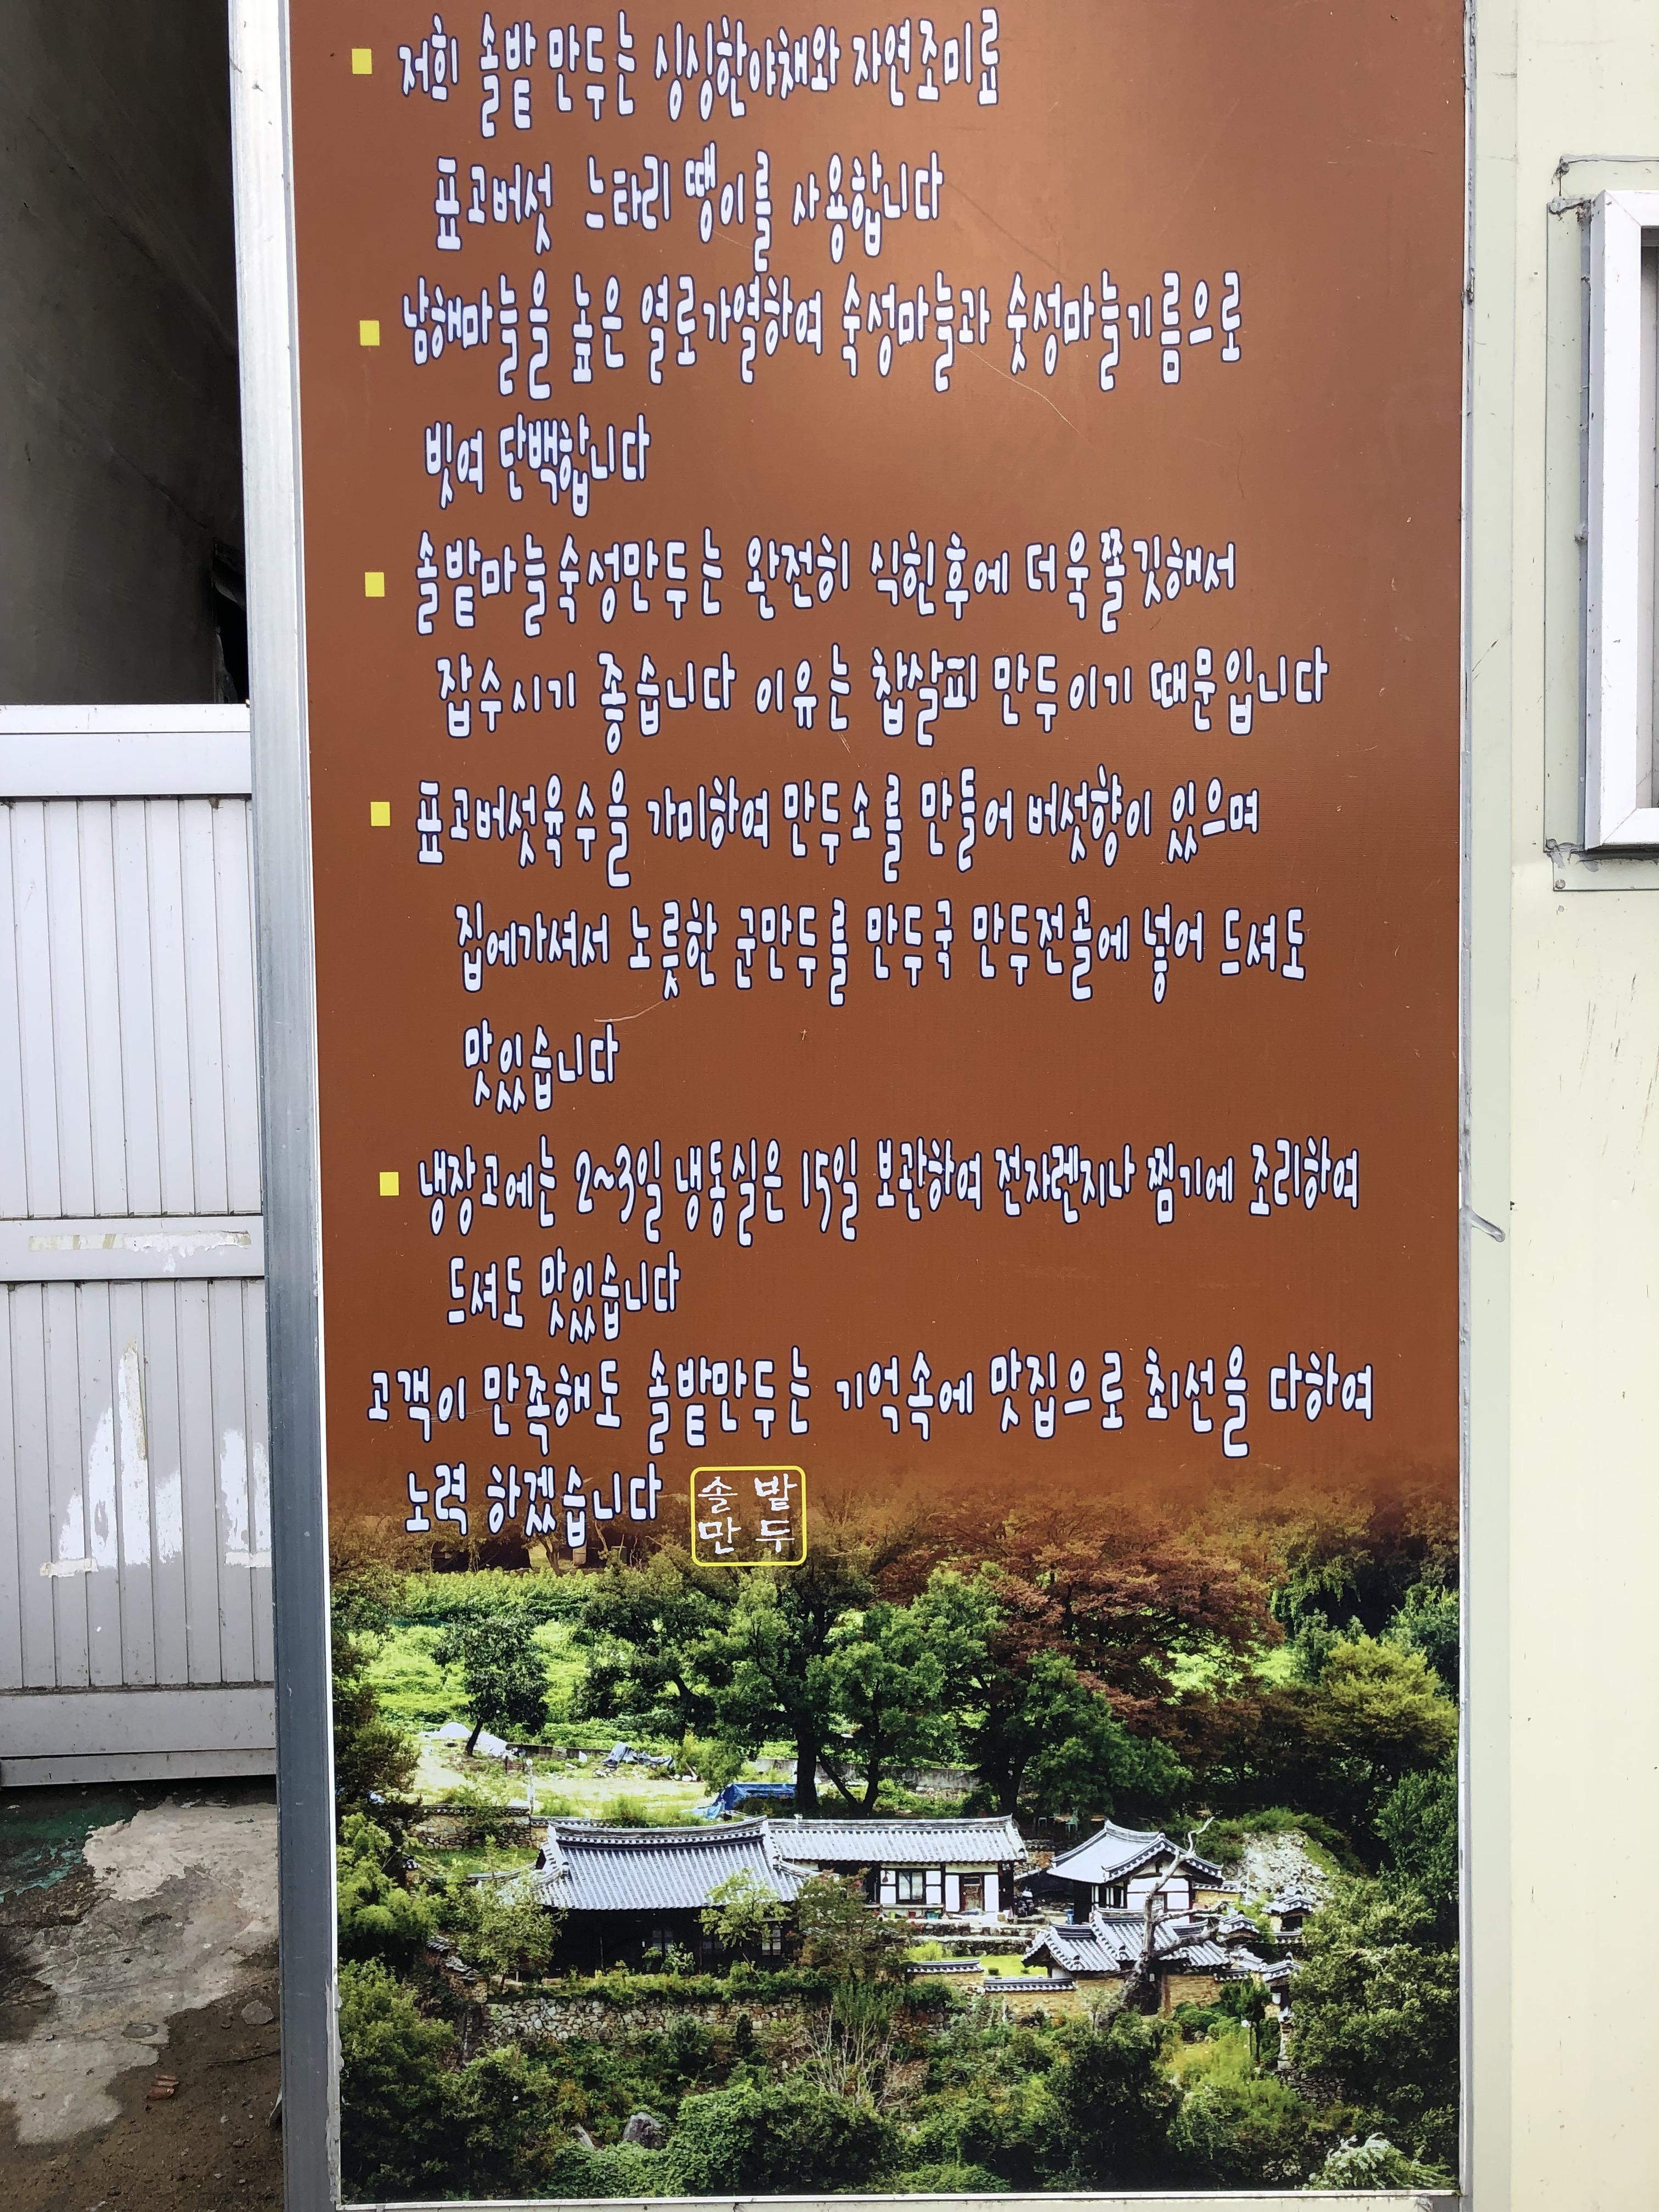 저희 솔밭 만두는 싱싱한야채와 자연조미료
표고버섯 느타리 땡이를 사용합니다
남해마늘을 높은 열로가열하여 숙성마늘과 숫성마늘기름으로
빗여 단백합니다
솔밭마늘숙성만두는 완전히 식힌후에 더욱쫄깃해서
잡수시기 좋습니다 이유는 찹쌀피 만두이기 때문입니다
표고버섯육수을 가미하여 만두소를 만들어 버섯향이 있으며
집에가셔서 노릇한 군만두를 만두국 만두전골에 넣어 드셔도
맛있습니다
냉장고에는 2~3일 냉동실은 15일 보관하여 전자렌지나 찜기에 조리하여
드셔도 맛있습니다
고객이 만족해도 솔밭만두는 기억속에 맛집으로 최선을 다하여
노력 하겠습니다
솔밭
만두